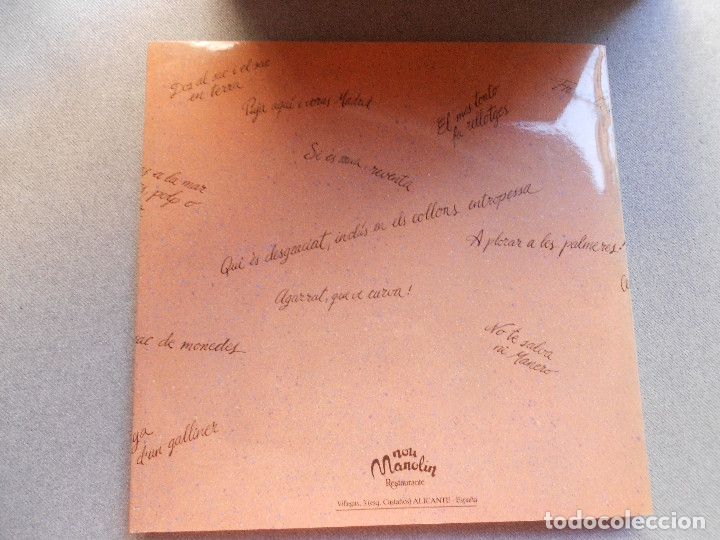 Des al sac i el sac
en terra
Puja aquí i voras Madrid
El mes tonto
fa rellotges
Si és mua, reventa
a la mar
polp o
Qui és desgraciat, inclús en els collons entropessa
A plorar a les palmeres!
Agarrat, que ve curva!
de monedes
No te salva
ni Manero
d'un galliner
nou
Manolin
Restaurante
Villegas, 3 (esq. Castaños) ALICANTE - España
todocoleccion